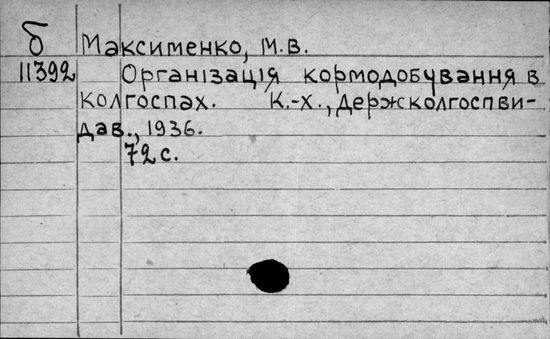 б Максименко, М.В.
11392 Організація кормодобування в
колгоспах. К.-х., Держколгоспви-
дав., 1936.
72 с.